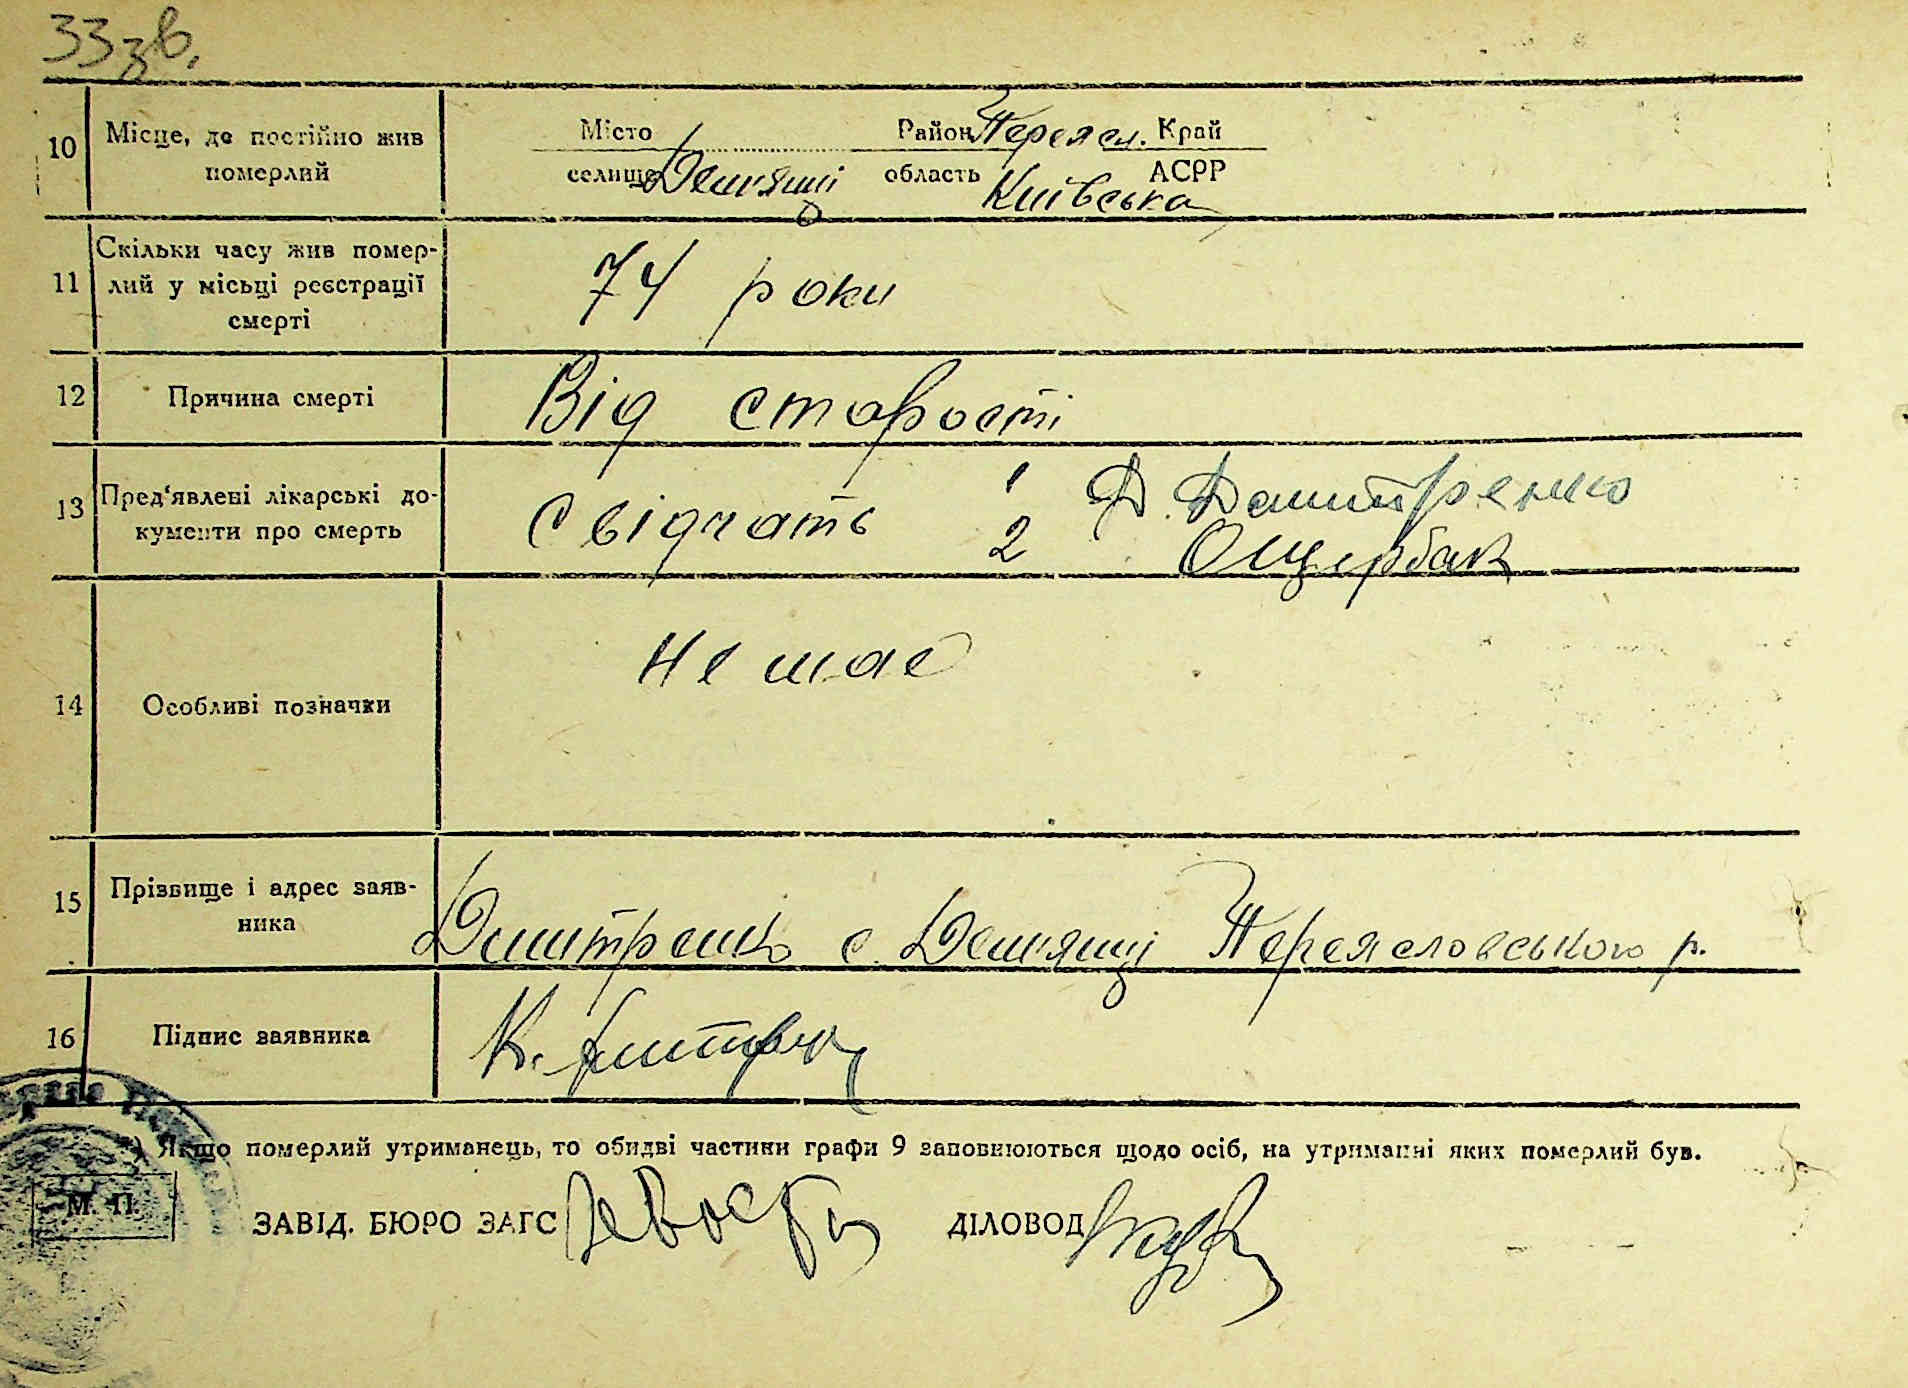 33 зв.
10 Місце, де постійно жив
померлий
Місто Район Переясл. Край
селище Демянці область Київська АСРР
11 Скільки часу жив помер-
лий у місьці реєстрації
смерті
74 роки
12 Причина смерті Від старості
13 Пред'явлені лікарські до-
кументи про смерть
Свідчать 1 Д. Дмитренко
2 О Щербак
14 Особливі позначки
Не має
15 Прізвище і адрес заяв-
ника
Дмитренко с. Демянці Переясловського р.
16 Підпис заявника К.
*) Якщо померлий утриманець, то обидві частини графи 9 заповнюються щодо осіб, на утриманні яких померлий був.
М. П.
ЗАВІД. БЮРО ЗАГС ДІЛОВОД